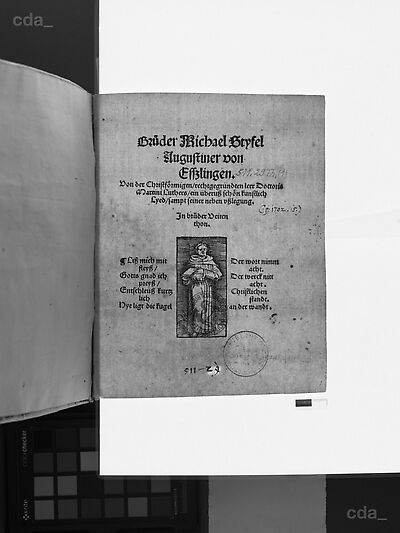 cda_
Brůder Michael Styfel
Augustiner von
Eſſzlingen.
Von der Chriſtförmigen/ rechtgegründten leer Doctoris
Martini Luthers/ ein überuß ſchön kunſtlich
Lyed/ ſampt ſeiner neben vßlegung.
In brůder Veiten
thon.
¶ Liß mich mit
fleyß/
Gottis gnad ich
preyß/
Entſchleuß kurtz
lich
Hye ligt die kugel
Der wort nimm
acht.
Der werck nitt
acht.
Chriſtlichen
ſtandt.
an der wandt.
cda_